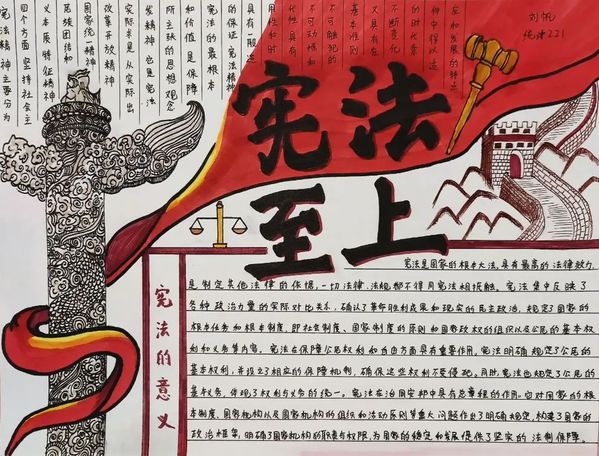 刘帆
统计221
宪法精神主要分为
四个方面 坚持社会主
义本质特征精神
民族团结和
国家统一精神
改革开放精神
实际求是从实际出
发精神 它是宪法
所主张的思想观念
和价值 是保障
宪法的最根本
的保证 宪法精神
具有一般适
用性和时
代性 具有
不可动摇和
不可触犯的
基本准则
又具有在
不断变化
的时代条
件中得以适
应和发展的特点
宪法
至上
宪法的意义
宪法是国家的根本大法,具有最高的法律效力,
是制定其他法律的依据,一切法律、法规都不得同宪法相抵触。宪法集中反映了
各种政治力量的实际对比关系,确认了革命胜利成果和现实的民主政治,规定了国家的
根本任务和根本制度,即社会制度、国家制度的原则和国家政权的组织以及公民的基本权
利和义务等内容。宪法在保障公民权利和自由方面具有重要作用。宪法明确规定了公民的
基本权利,并设立了相应的保障机制,确保这些权利不受侵犯。同时,宪法也规定了公民的
基本义务,体现了权利与义务的统一。宪法在治国安邦中具有总章程的作用。它对国家的根
本制度、国家机构以及国家机构的组织和活动原则等重大问题作出了明确规定,构建了国家的
政治框架,明确了国家机构的职责与权限,为国家的稳定和发展提供了坚实的法制保障。